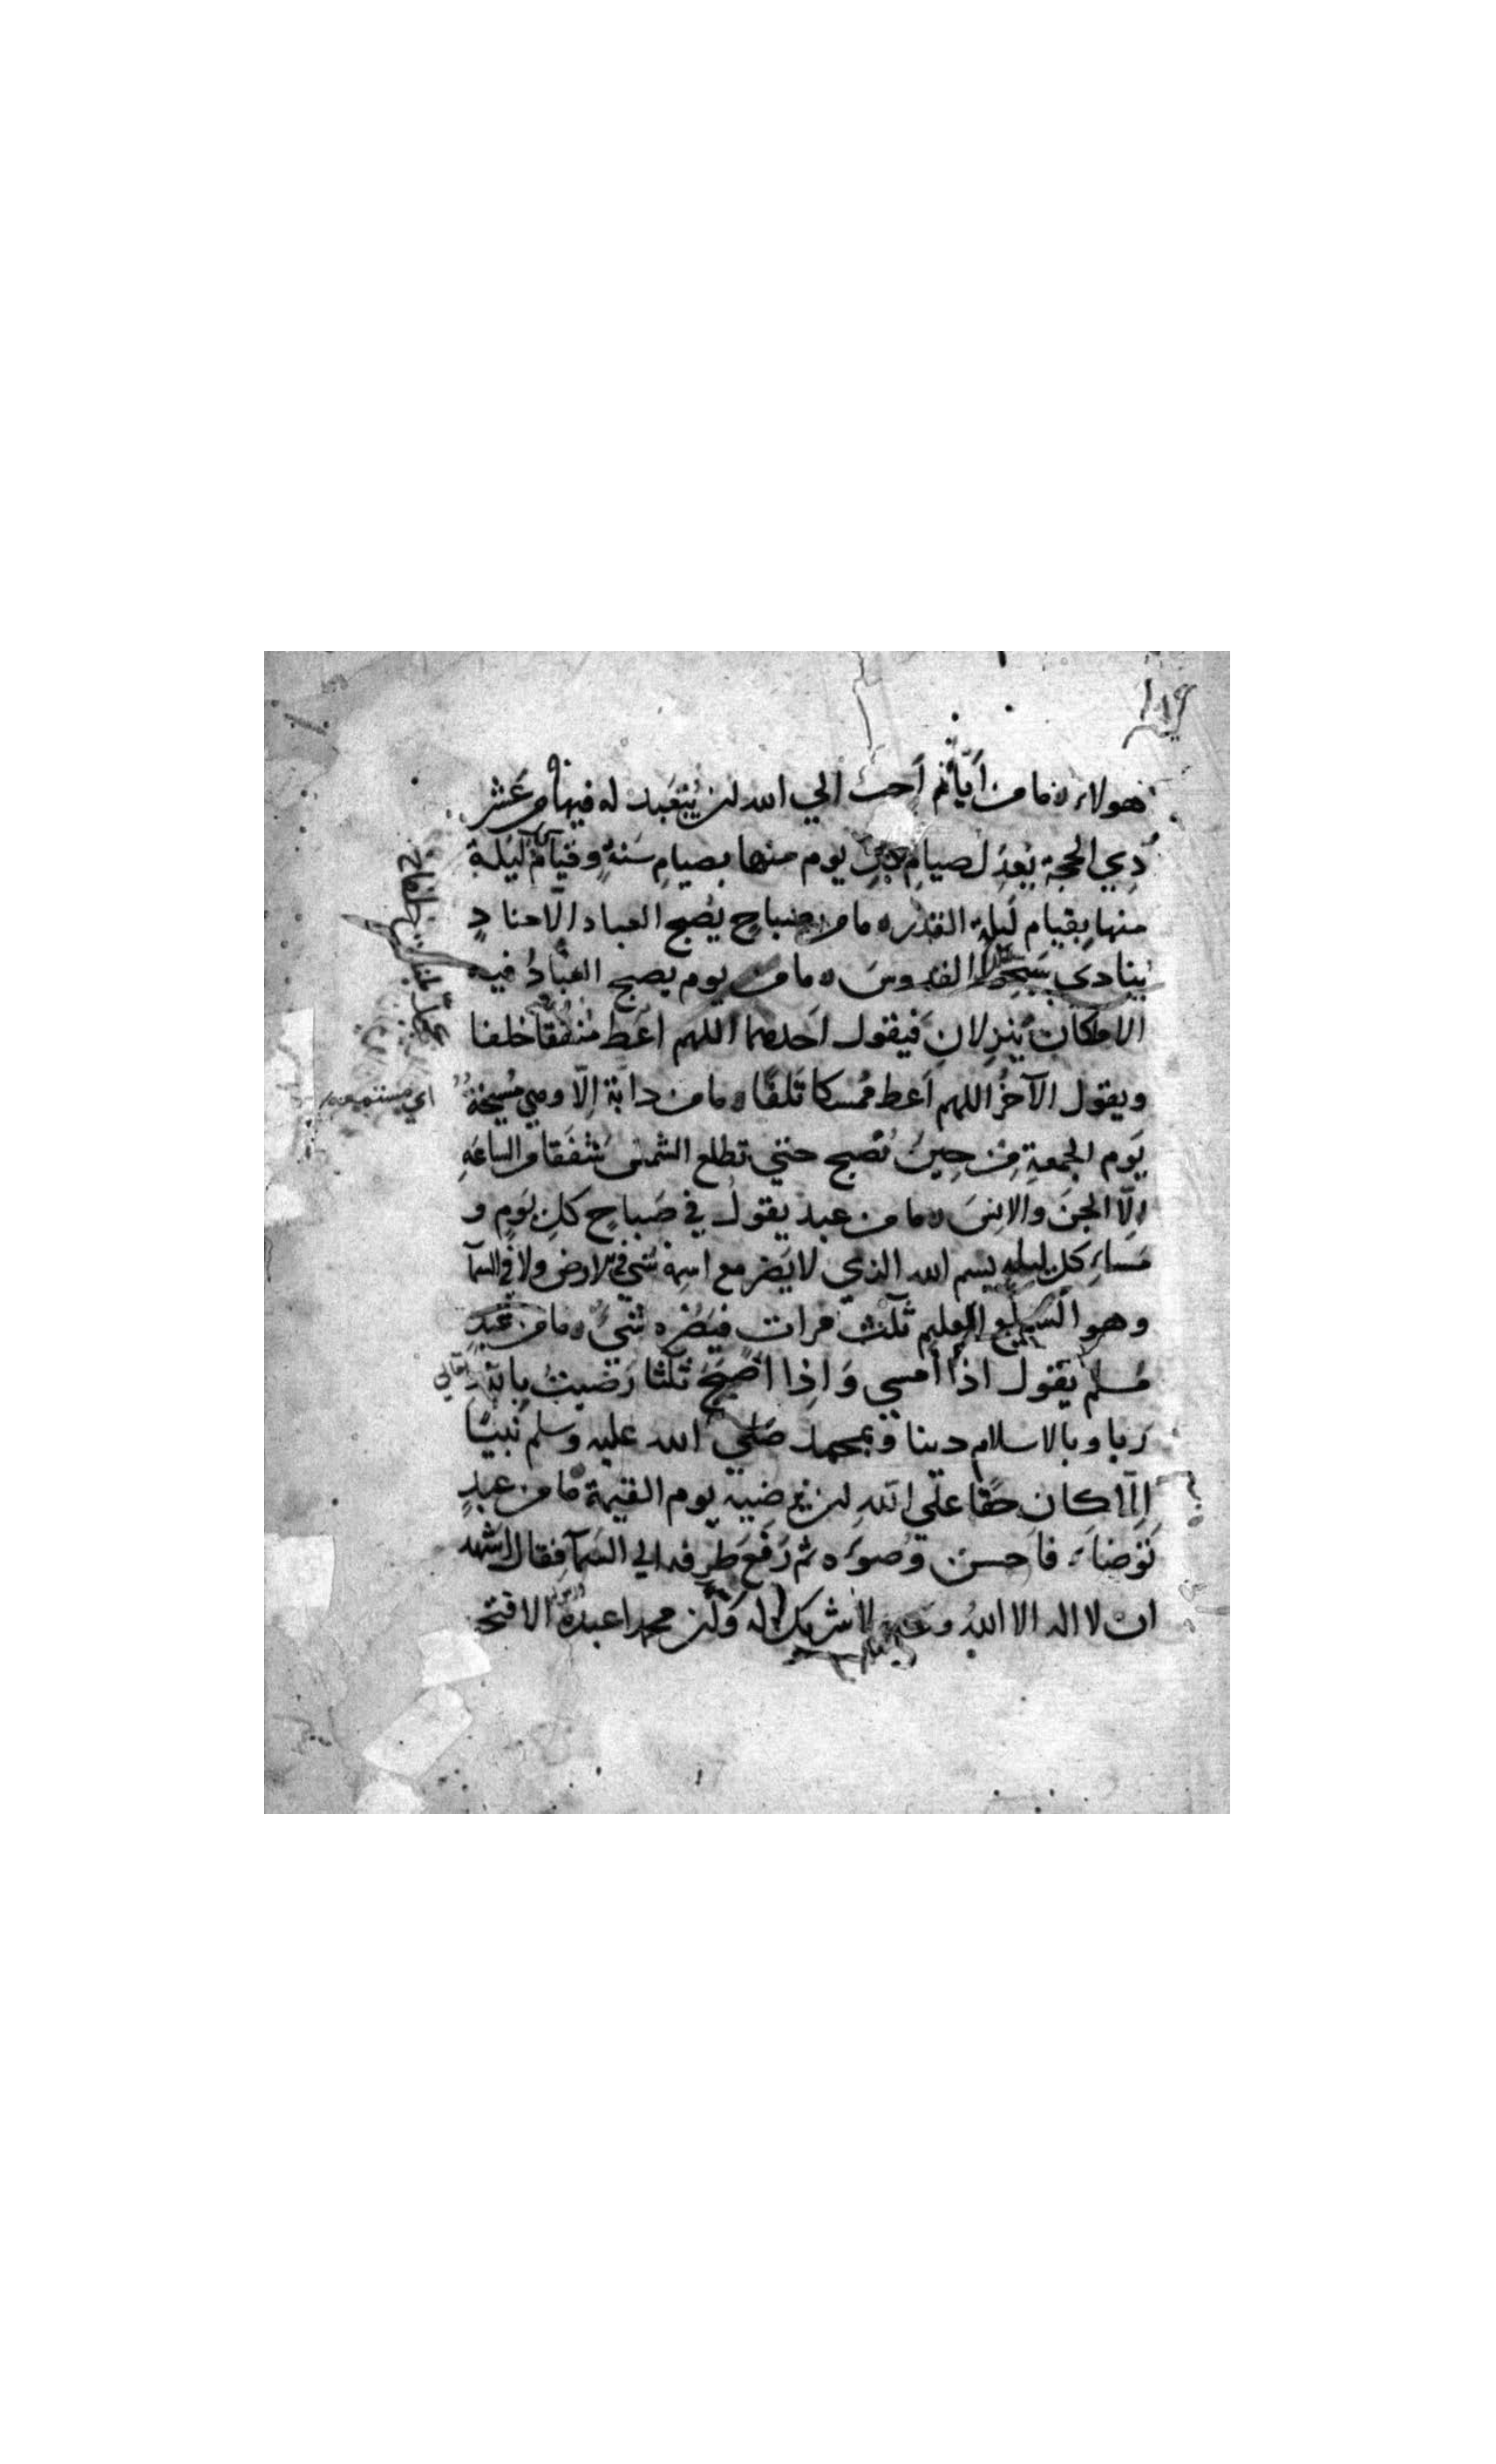 هولاء ه ما من اَيّامٍ اَحبّ الي الله ان يُتعَبد له فيها من عَشر
ذِي الحجة يَعدِل صيام كلِ يوم منها بصيامِ سَنةٍ وقيامُ كل ليَلة
منها بِقيام لَيلةِ القدر ه ما من صباحٍ يُصبح العباد الّا مناد
ينادى سَبحوا الملك القدوسَ ه ما من يوم يصبح العبَادُ فيه
الا ملكان يَنزِلانِ فَيقول اَحدهما اللهم اَعط مُنفقا خلفا
ويقول الآخرُ اللهم اَعط مُمسكا تَلفًا ه ما من دابَة اِلّا وهي مُسِيخَةٌ
اي مستمعه
يَوم الجمعةِ مِن حِينَ تُصبح حتي تطلع الشمسُ شفَقا من الساعَةِ
اِلّا الجنَ والاِنسَ ه ما من عبد يقول في صَباحِ كلِ يَومٍ و
مَساءِ كلِ ليلةٍ بسم الله الذي لا يَضر مع اسمِه شيءٌ في الارض ولا في السمآ
وهو السَميع العليم ثَلثَ مرات فيَضُره شيءٌ ه ما من عَبدٍ
مُسلم يقول اذا اَمسي وَاِذا اَصبَحَ ثَلثا رَضيتُ بِالله تعالي
رَبا وبالاسلام دينا وَبمحمد صَلي الله عليه وسلم نَبيًا
اِلّا كان حَقا علي اللهِ ان يُرضيَه يوم القيمة ما من عبدٍ
تَوَضاء فاَحسن وُضوءَه ثم رَفَع طَرفه الي السَمآ فقال اشهد
ان لا اله الا اللهُ وحده لا شريك له وَان محمدا عبدُه ورسوله الا فتح